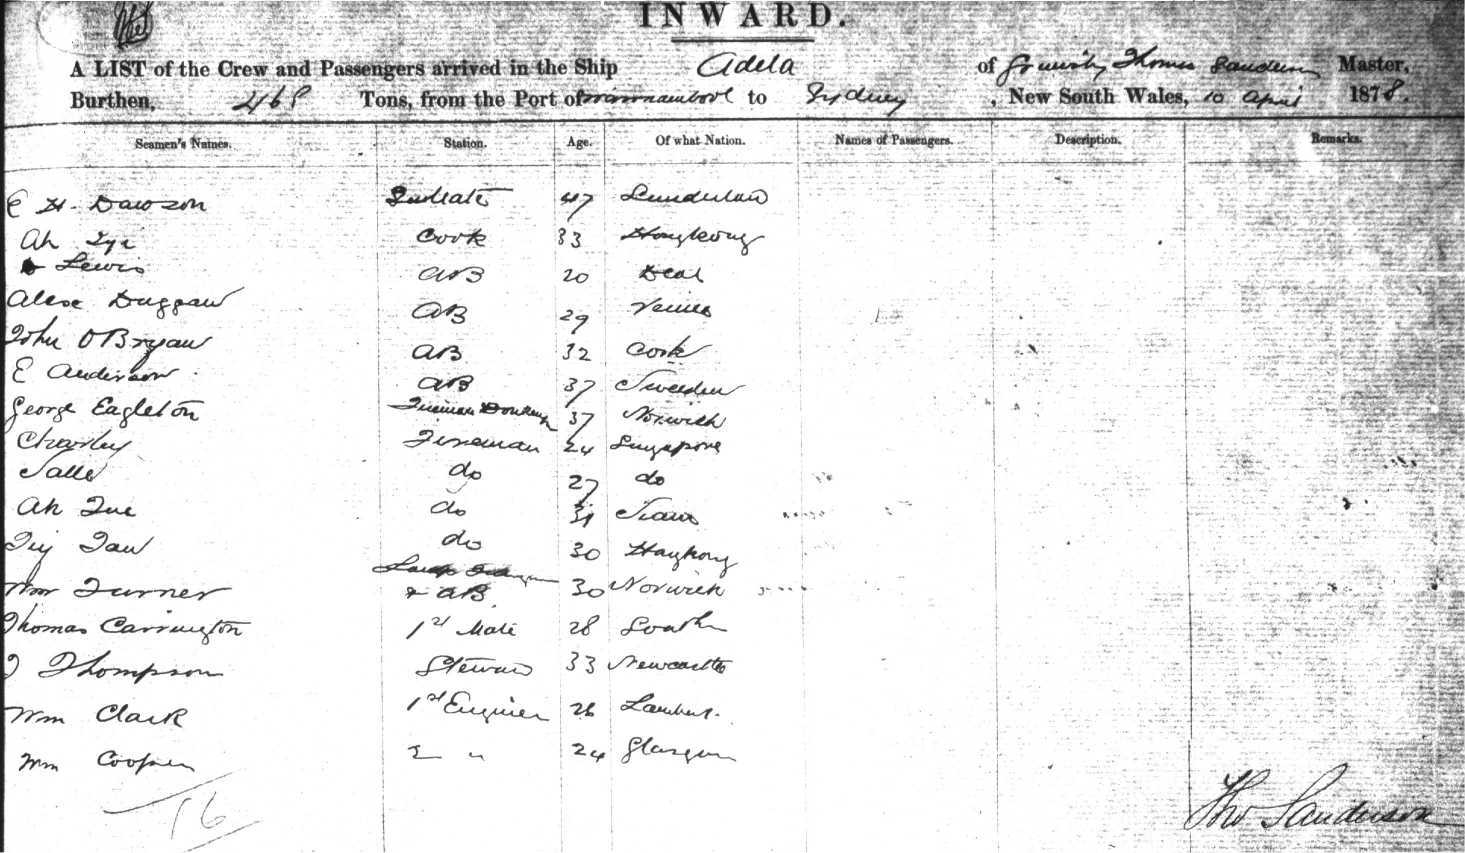 INWARD.
A LIST of the Crew and Passengers arrived in the Ship Adela of Grimsby, Thomas Sanderson Master,
Burthen, 468 Tons, from the Port of Warrnambool to Sydney, New South Wales, 10 April 1878.
Seamen's Names. Station. Age. Of what Nation. Names of Passengers. Description. Remarks.
E H. Dawson 2nd Mate 47 Sunderland
Ah Cook 33 Hongkong
Lewis AB 20 Deal
Duggan AB 29
John OBryan AB 32 Cork
E Anderson AB 37 Sweeden
George Eagleton Fireman 37 Norwich
Charley Fireman 24 Singapore
Salle do 27 do
Ah do 31 Siam
do 30
Wm Turner & AB 30 Norwich
Thomas Carrington 1st Mate 28
Thompson Steward 33 Newcastle
Wm Clark 1st Engineer 26
Wm Cooper 2 " 24 Glasgow
16
Tho Sanderson